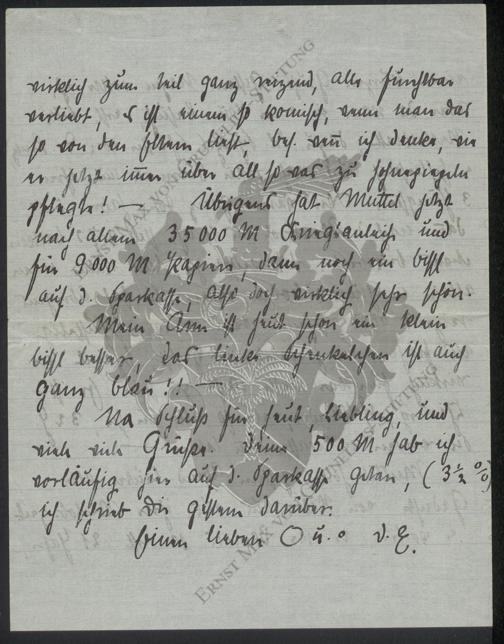 wirklich zum teil ganz reizend, alle furchtbar
verliebt, es ist einem so komisch, wenn man das
so von den Eltern liest, bes. wenn ich denke, wie
er jetzt immer über all so was zu
pflegte! — Übrigens hat Muttel jetzt
nach allem 35000 M Kriegsanleihe und
für 9000 M Papiere, dann noch ein bissl
auf d. Sparkasse, also doch wirklich sehr schön.
Mein Arm ist heut schon ein klein
bissl besser, das linke ist auch
ganz blau!! —
Na Schluß für heut, Liebling, und
viele viele Grüße. Deine 500 M hab ich
vorläufig hier auf d. Sparkasse getan, (3 ½ %)
ich schrieb Dir gestern darüber.
Einen lieben O u. o D. E.
ERNST MAX VON STIFTUNG
ERNST MAX VON STIFTUNG